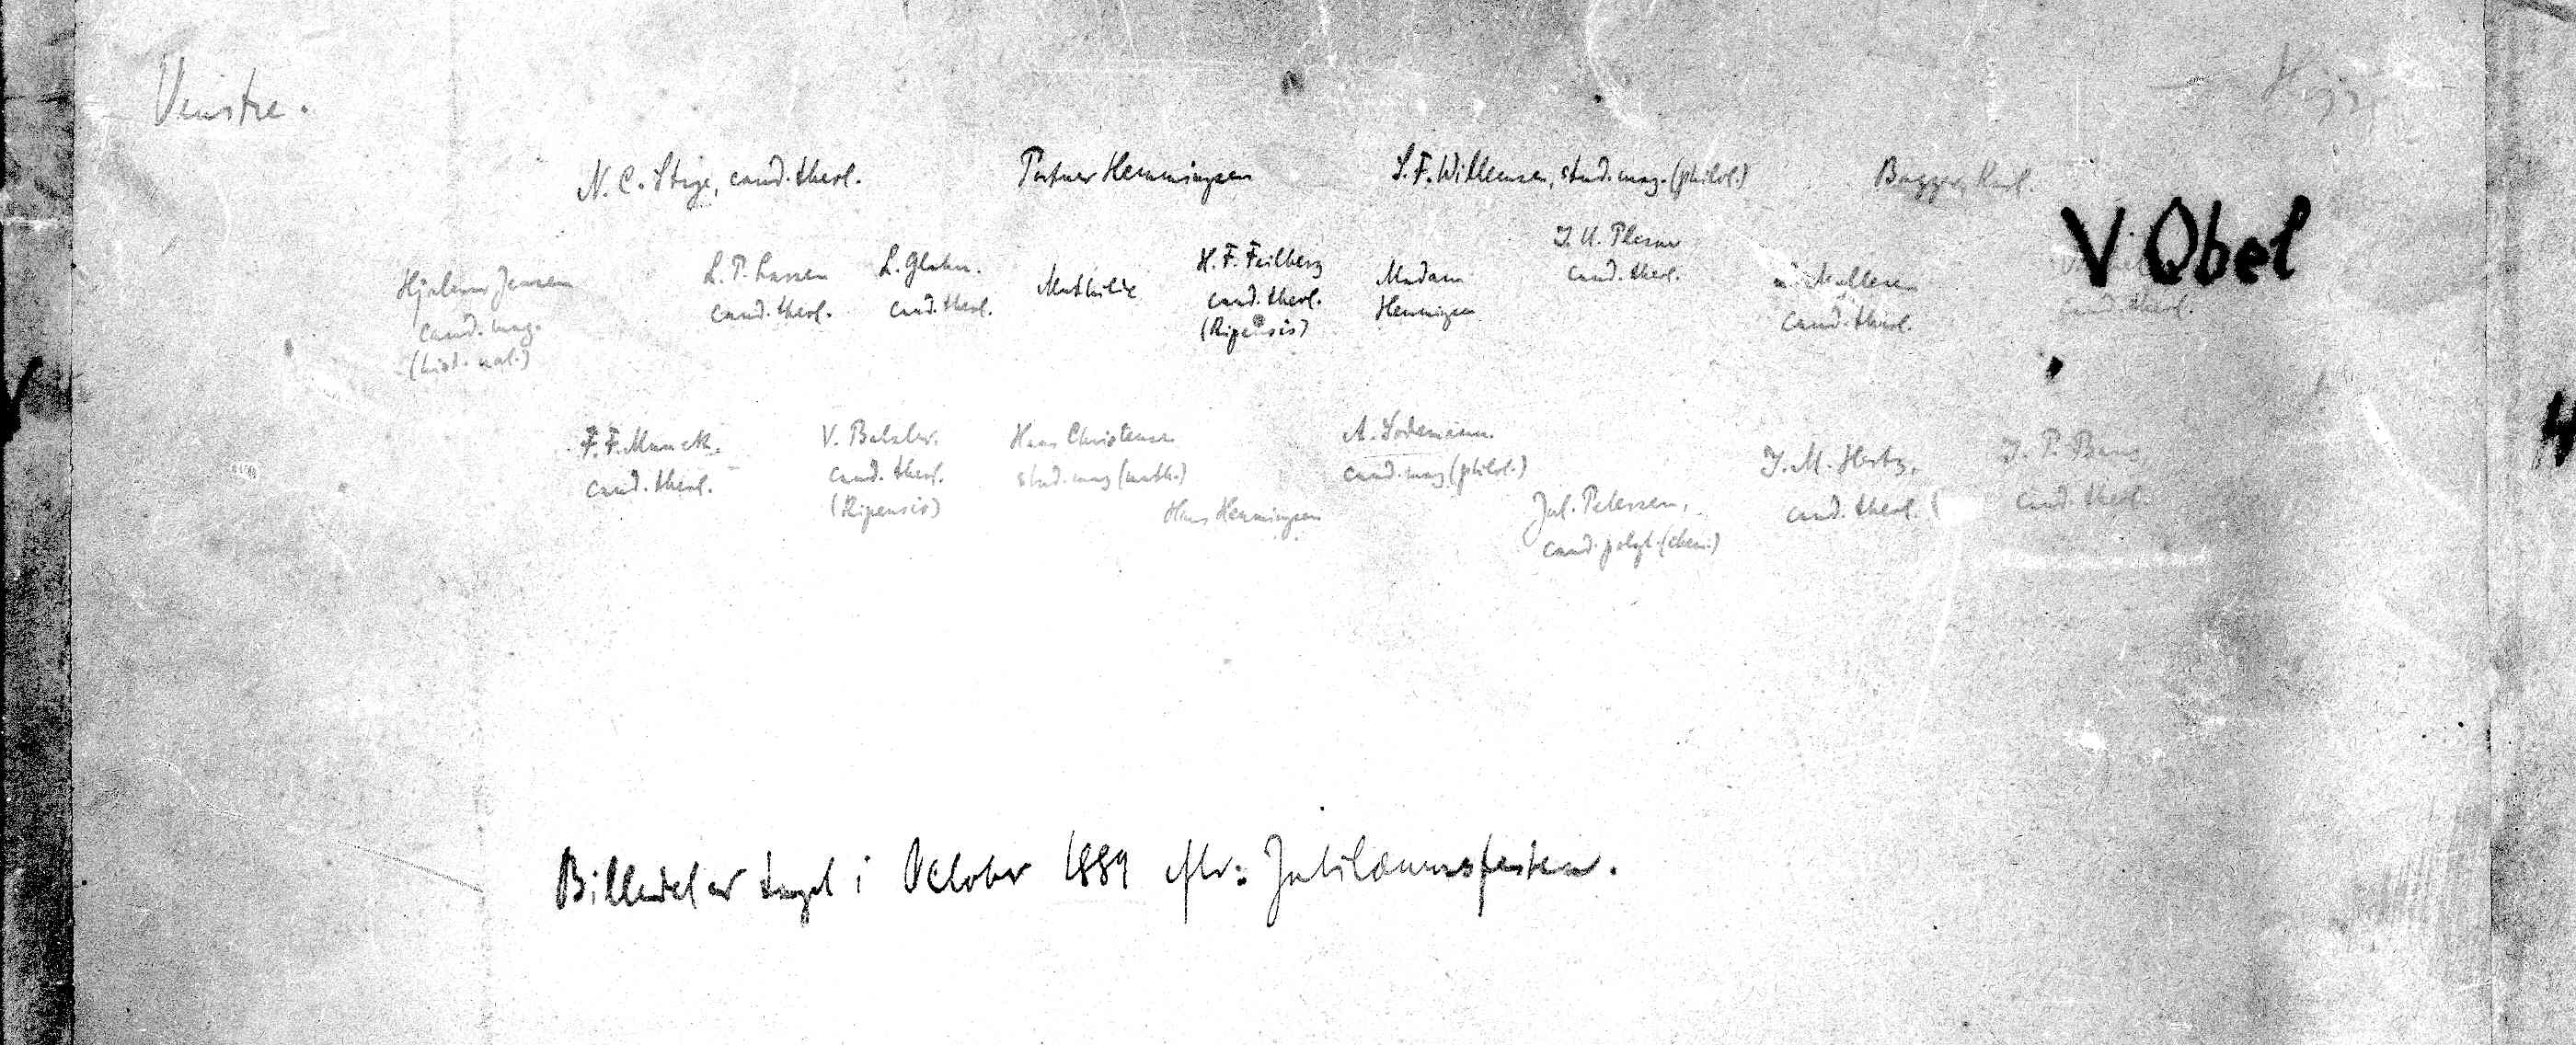 Venstre.
N. C. Stige, cand. theol.
Portner Hemmingsen
S. F. Willemsen, stud. mag. (philol.)
Hjalmar Jensen
cand. mag.
(hist. nat.)
L. P. Lassen
cand. theol.
L. Glahn.
cand. theol.
Mathilde
H. F. Feilberg
cand. theol.
(Ripensis)
Madam
Hemmingsen
cand. theol.
Møllesen
cand. theol.
V Obel
cand. theol.
F. F. Munck.
cand. theol.
cand. theol.
(Ripensis)
Hans Christensen
stud. mag (math.)
Hans Hemmingsen
cand. mag (philol.)
Jul. Petersen,
cand. polyt. (chem.)
J. M. Hertz,
cand. theol.
J. P. Bang
cand. theol.
Billedet er taget i October 1889 eftr: Jubilæumsfesten.